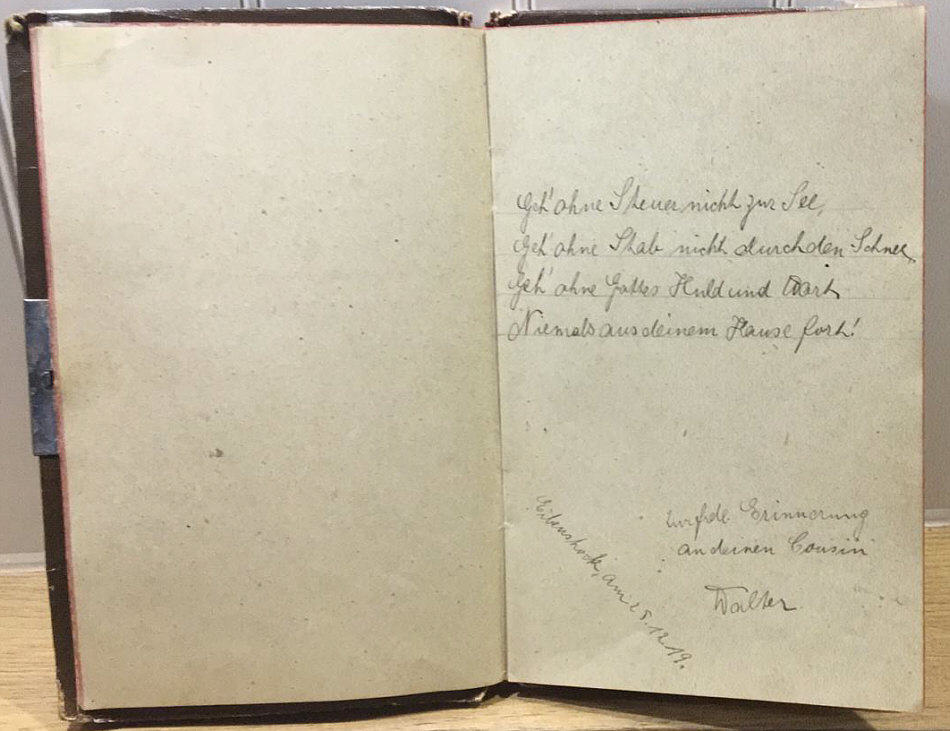 Geh' ohne Steuer nicht zur See,
Geh' ohne Stab nicht durch den Schnee,
Geh' ohne Gottes Huld und Wort
Niemals aus deinem Hause fort!
Erinnerung
an deinen Cousin
Walter
Eibenstock, am 25.12.19.